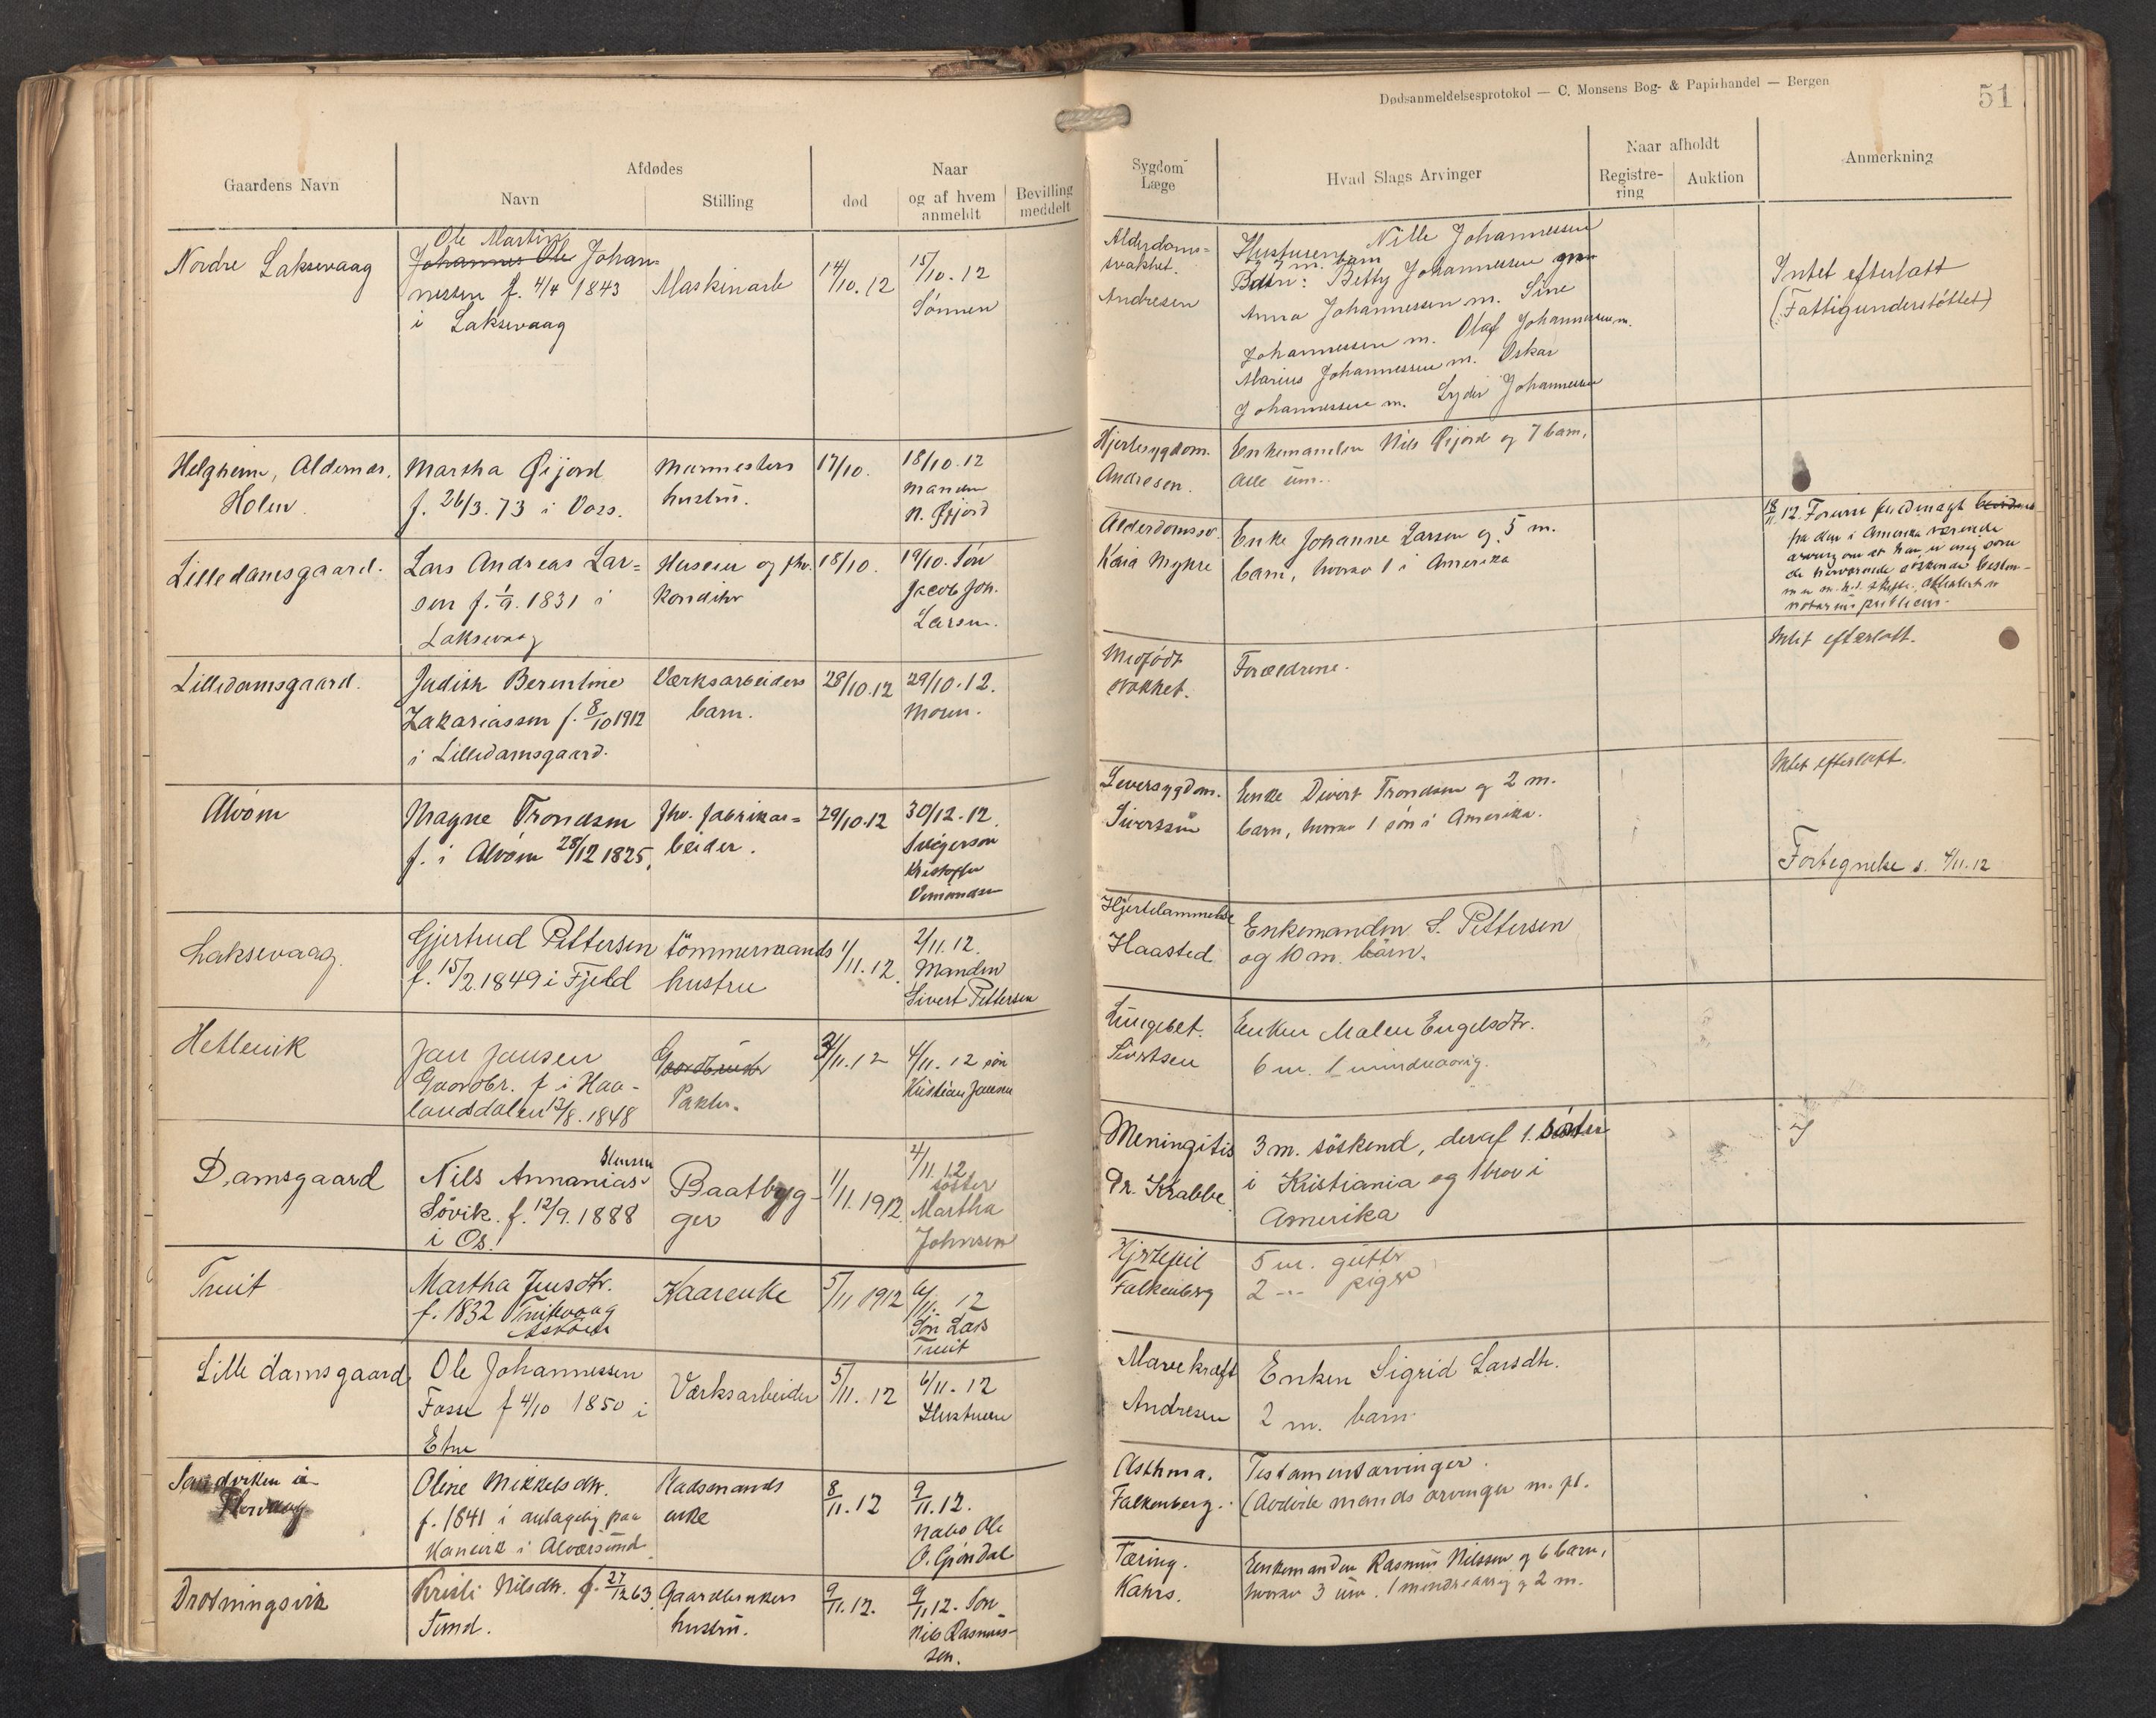 Dødsanmeldelsesprotokol — C. Monsens Bog- & Papirhandel — Bergen
51
Gaardens Navn
Afdødes
Navn
Stilling
død
Naar
og af hvem
anmeldt
Bevilling
meddelt
Sygdom
Læge
Hvad Slags Arvinger
Naar afholdt
Registre-
ring
Auktion
Anmerkning
Nordre Laksevaag
Ole Martin
Johannes Ole Johan=
nessen f. 4/4 1843
i Laksevaag
Maskinarb
14/10.12
15/10.12
Sønnen
Alderdoms=
svakhet.
Andresen
Hustruen Nille Johannessen
7 m. barn
Børn: Betty Johannessen
Anna Johannessen m. Sine
Johannessen m. Olaf Johannessen m.
Marius Johannessen m. Oskar
Johannessen m. Lyder Johannessen
Intet efterlatt
(Fattigunderstøttet)
Helgheim, Aldernes.
Holen.
Martha Øijord
f. 26/3.73 i Voss.
Murmesters
hustru.
17/10.
18/10.12
Manden
N. Øijord
Hjertesygdom.
Andresen.
Enkemanden Nils Øijord og 7 barn,
alle um..
Lilledamsgaard.
Lars Andreas Lar=
sen f. 1/9. 1831 i
Laksevaag
Huseier og fhv.
konditor
18/10.
19/10. Søn
Jacob Joh.
Larsen.
Alderdomssv.
Kaia Myhre
Enke Johanne Larsen og 5 m.
barn, hvorav 1 i Amerika
18/11.12. Forevist fuldmagt
fra den i Amerika værende
arving om at han er enig som
de herværende søskende bestem-
mer m.h.t. skifte. Attestert av
notarius publicus.
Lilledamsgaard.
Judith Berentine
Zakariassen f. 8/10 1912
i Lilledamsgaard.
Værksarbeiders
barn.
28/10.12
29/10.12.
Moren.
Medfødt
svakhet.
Forældrene.
Intet efterlatt.
Alvøen
Magne Trondsen
f. i Alvøen 28/12 1825.
fhv. fabrikar=
beider.
29/10.12
30/12.12.
Svigersøn
Kristoffer
Leversygdom.
Siverssen
Enke Divert Trondsen og 2 m.
barn, hvorav 1 søn i Amerika.
Intet efterlatt.
Fortegnelse s. 4/11.12
Laksevaag.
Gjertrud Pettersen
f. 15/2.1849 i Fjeld
tømmermands
hustru
1/11.12.
2/11.12.
Manden
Sivert Pettersen
Hjertelammelse
Haasted
Enkemanden S. Pettersen
og 10 m. børn.
Hetlevik
Jan Jansen
Gaardbr. f i Haa-
landsdalen 12/8.1848
Gaardbruker
Pakter.
3/11.12
4/11.12 søn
Kristian Jansen
Lungebet.
Sivertsen
Enken Malen Engelsdtr.
6 m. 1 mindreaarig.
Damsgaard
Nils Annanias
Søvik. f. 12/9.1888
i Os.
Baatbyg-
ger
1/11.1912.
4/11.12
søster
Martha
Johnsen
Meningitis
Dr. Krabbe
3 m. søskend, deraf 1. søster
i Kristiania og 1 bror i
Amerika
Truit
Martha Jensdtr.
f. 1832 Truitevaag
Askøen
Kaarenke
5/11 1912
6/11. 12
Søn Lars
Truit
Hjertefeil
Falkenberg
5 m. gutter
2 -"- piger
Lille damsgaard,
Ole Johannessen
Fosse f 4/10 1850 i
Etne
Værksarbeider
5/11.12
6/11.12
Hustruen
Mavekræft
Andresen
Enken Sigrid Larsdtr.
2 m. barn
Sandviken i
Florvaag
Oline Mikkelsdtr.
f. 1841 i antagelig paa
i Alversund.
Kadsmands
enke
8/11.12
9/11.12.
Nabo Ole
O. Grøndal
Asthma.
Falkenberg.
Testamentsarvinger.
(Avdøde mands arvinger m. fl.
Drotningsvik
Kristi Nilsdtr. f. 27/12 63.
Sund.
Gaardbrukers
hustru.
9/11.12.
9/11.12. Søn
Nils Rasmus-
sen.
Tæring.
Kahrs.
Enkemanden Rasmus Nilssen og 6 barn,
hvorav 3 um. 1 mindreaarig og 2 m.